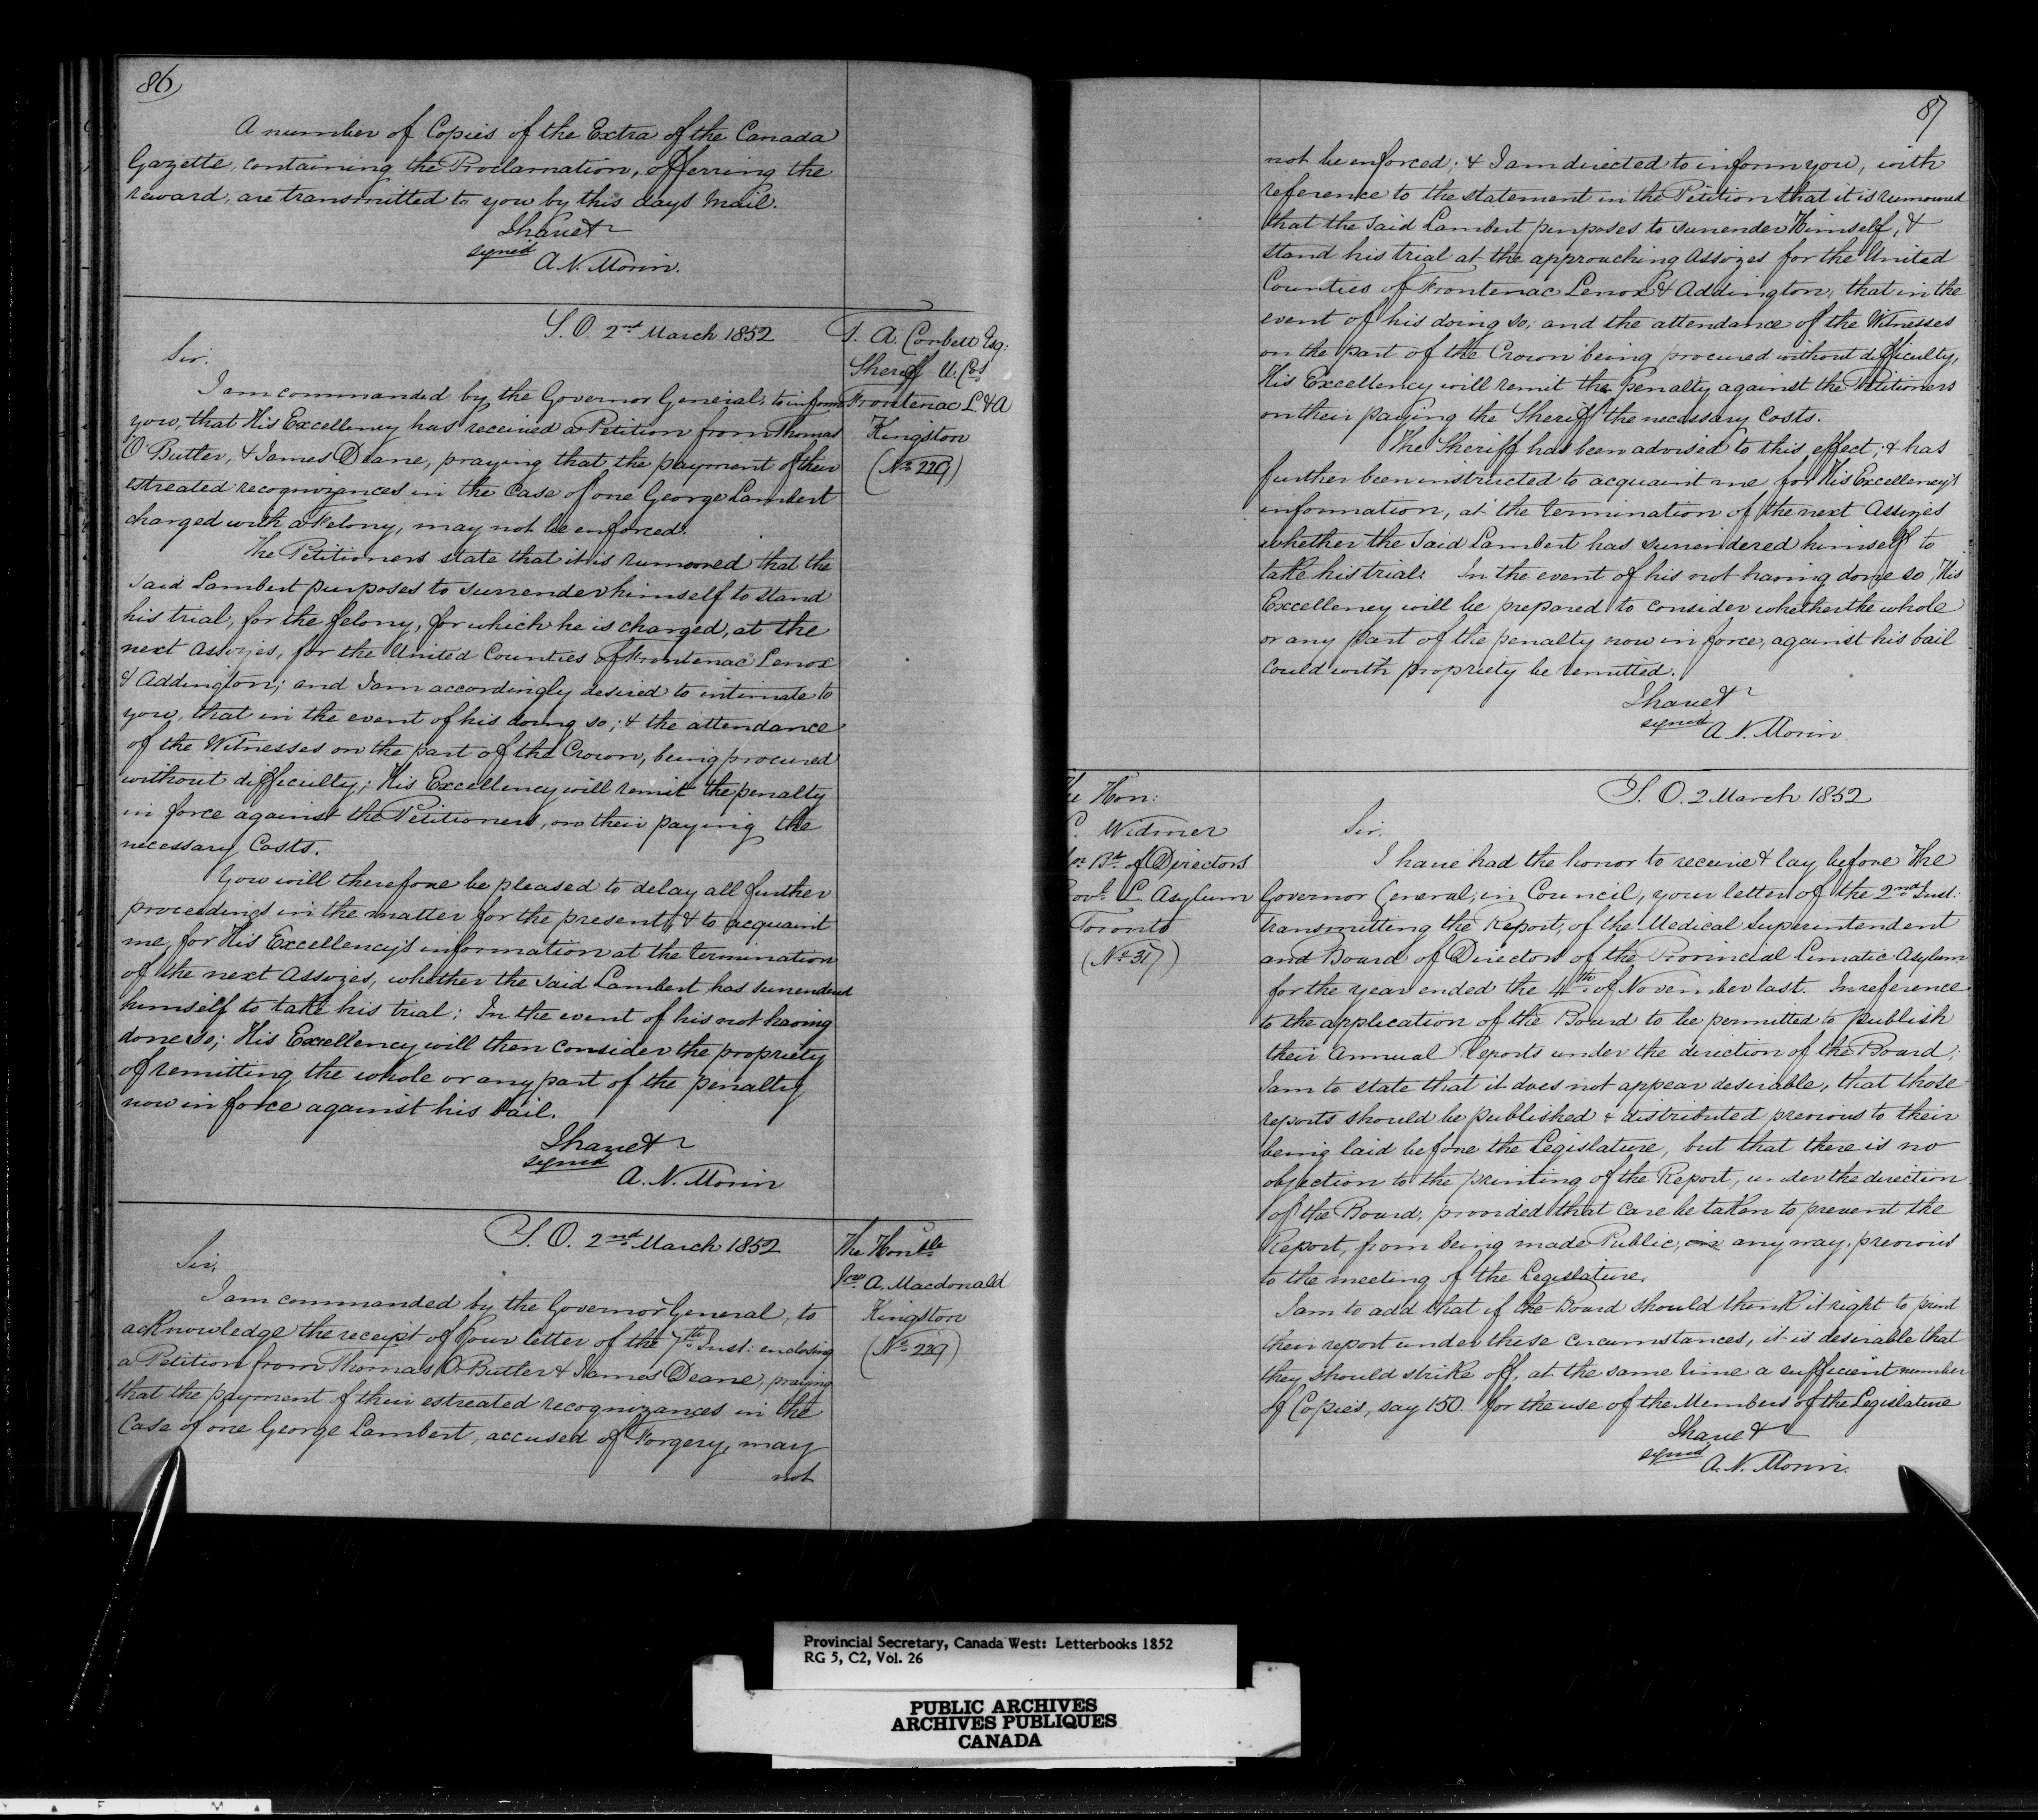 86
A number of Copies of the Extra of the Canada
Gazette, containing the Proclamation, offerring the
reward, are transmitted to you by this days Mail.
I have &c
signed
A. N. Morin.
S. O. 2nd March 1852
T. A. Corbett Esq:
Sheriff U. Cos
Frontenac L. & A
Kingston
(No 229)
Sir.
I am commanded by the Governor General, to inform
you, that His Excellency has received a Petition from Thomas
O'Butler, & James Deane, praying that the payment of their
estreated recognizances in the Case of one George Lambert
charged with a Felony, may not be enforced.
The Petitioners state that it is rumoured that the
said Lambert purposes to surrender himself to stand
his trial, for the felony, for which he is charged, at the
next Assizes, for the United Counties of Frontenac Lenox
& Addington; and I am accordingly desired to intimate to
you, that in the event of his doing so; & the attendance
of the Witnesses on the part of the Crown, being procured
without difficulty; His Excellency will remit the penalty
in force against the Petitioners, on their paying the
necessary Costs.
You will therefore be pleased to delay all further
proceedings in the matter for the present, & to acquaint
me, for His Excellency's information at the termination
of the next Assizes, whether the said Lambert has surrendered
himself to take his trial: In the event of his not having
done so; His Excellency will then consider the propriety
of remitting the whole or any part of the penalty
now in force against his bail.
I have &c
signed
A. N. Morin
S. O. 2nd March 1852
The Honble
Jno A. Macdonald
Kingston
(No 229)
Sir,
I am commanded by the Governor General, to
acknowledge the receipt of your letter of the 7th Inst: enclosing
a Petition from Thomas O. Butler & James Deane, praying
that the payment of their estreated recognizances in the
Case of one George Lambert, accused of Forgery, may
not
87
not be enforced; & I am directed to inform you, with
reference to the statement in the Petition that it is rumoured
that the said Lambert purposes to surrender Himself, &
stand his trial at the approaching Assizes for the United
Counties of Frontenac Lenox & Addington, that in the
event of his doing so, and the attendance of the Witnesses
on the part of the Crown being procured without difficulty,
His Excellency will remit the penalty against the Petitioners
on their paying the Sheriff the necessary Costs.
The Sheriff has been advised to this effect, & has
further been instructed to acquaint me for His Excellency's
information, at the termination of the next Assizes
whether the said Lambert has surrendered himself to
take his trial: In the event of his not having done so, His
Excellency will be prepared to consider whether the whole
or any part of the penalty now in force, against his bail
could with propriety be remitted.
I have &c
signed
A. N. Morin.
The Hon:
C. Widmer
Bd. of Directors
L. Asylum
Toronto
(No 317)
S. O. 2 March 1852
Sir.
I have had the honor to receive & lay before The
Governor General, in Council, your letter of the 2nd Inst:
transmitting the Report, of the Medical Superintendent
and Board of Directors of the Provincial Lunatic Asylum
for the year ended the 4th of November last. In reference
to the application of the Board to be permitted to publish
their Annual Reports under the direction of the Board;
I am to state that it does not appear desirable, that those
reports should be published & distributed previous to their
being laid before the Legislature, but that there is no
objection to the printing of the Report, under the direction
of the Board, provided that care be taken to prevent the
Report, from being made Public, in any way, previous
to the meeting of the Legislature.
I am to add that if the Board should think it right to print
their report under these circumstances, it is desirable that
they should strike off, at the same time a sufficient number
of Copies, say 150. for the use of the Members of the Legislature
I have &c
signed
A. N. Morin.
Provincial Secretary, Canada West: Letterbooks 1852
RG 5, C2, Vol. 26
PUBLIC ARCHIVES
ARCHIVES PUBLIQUES
CANADA